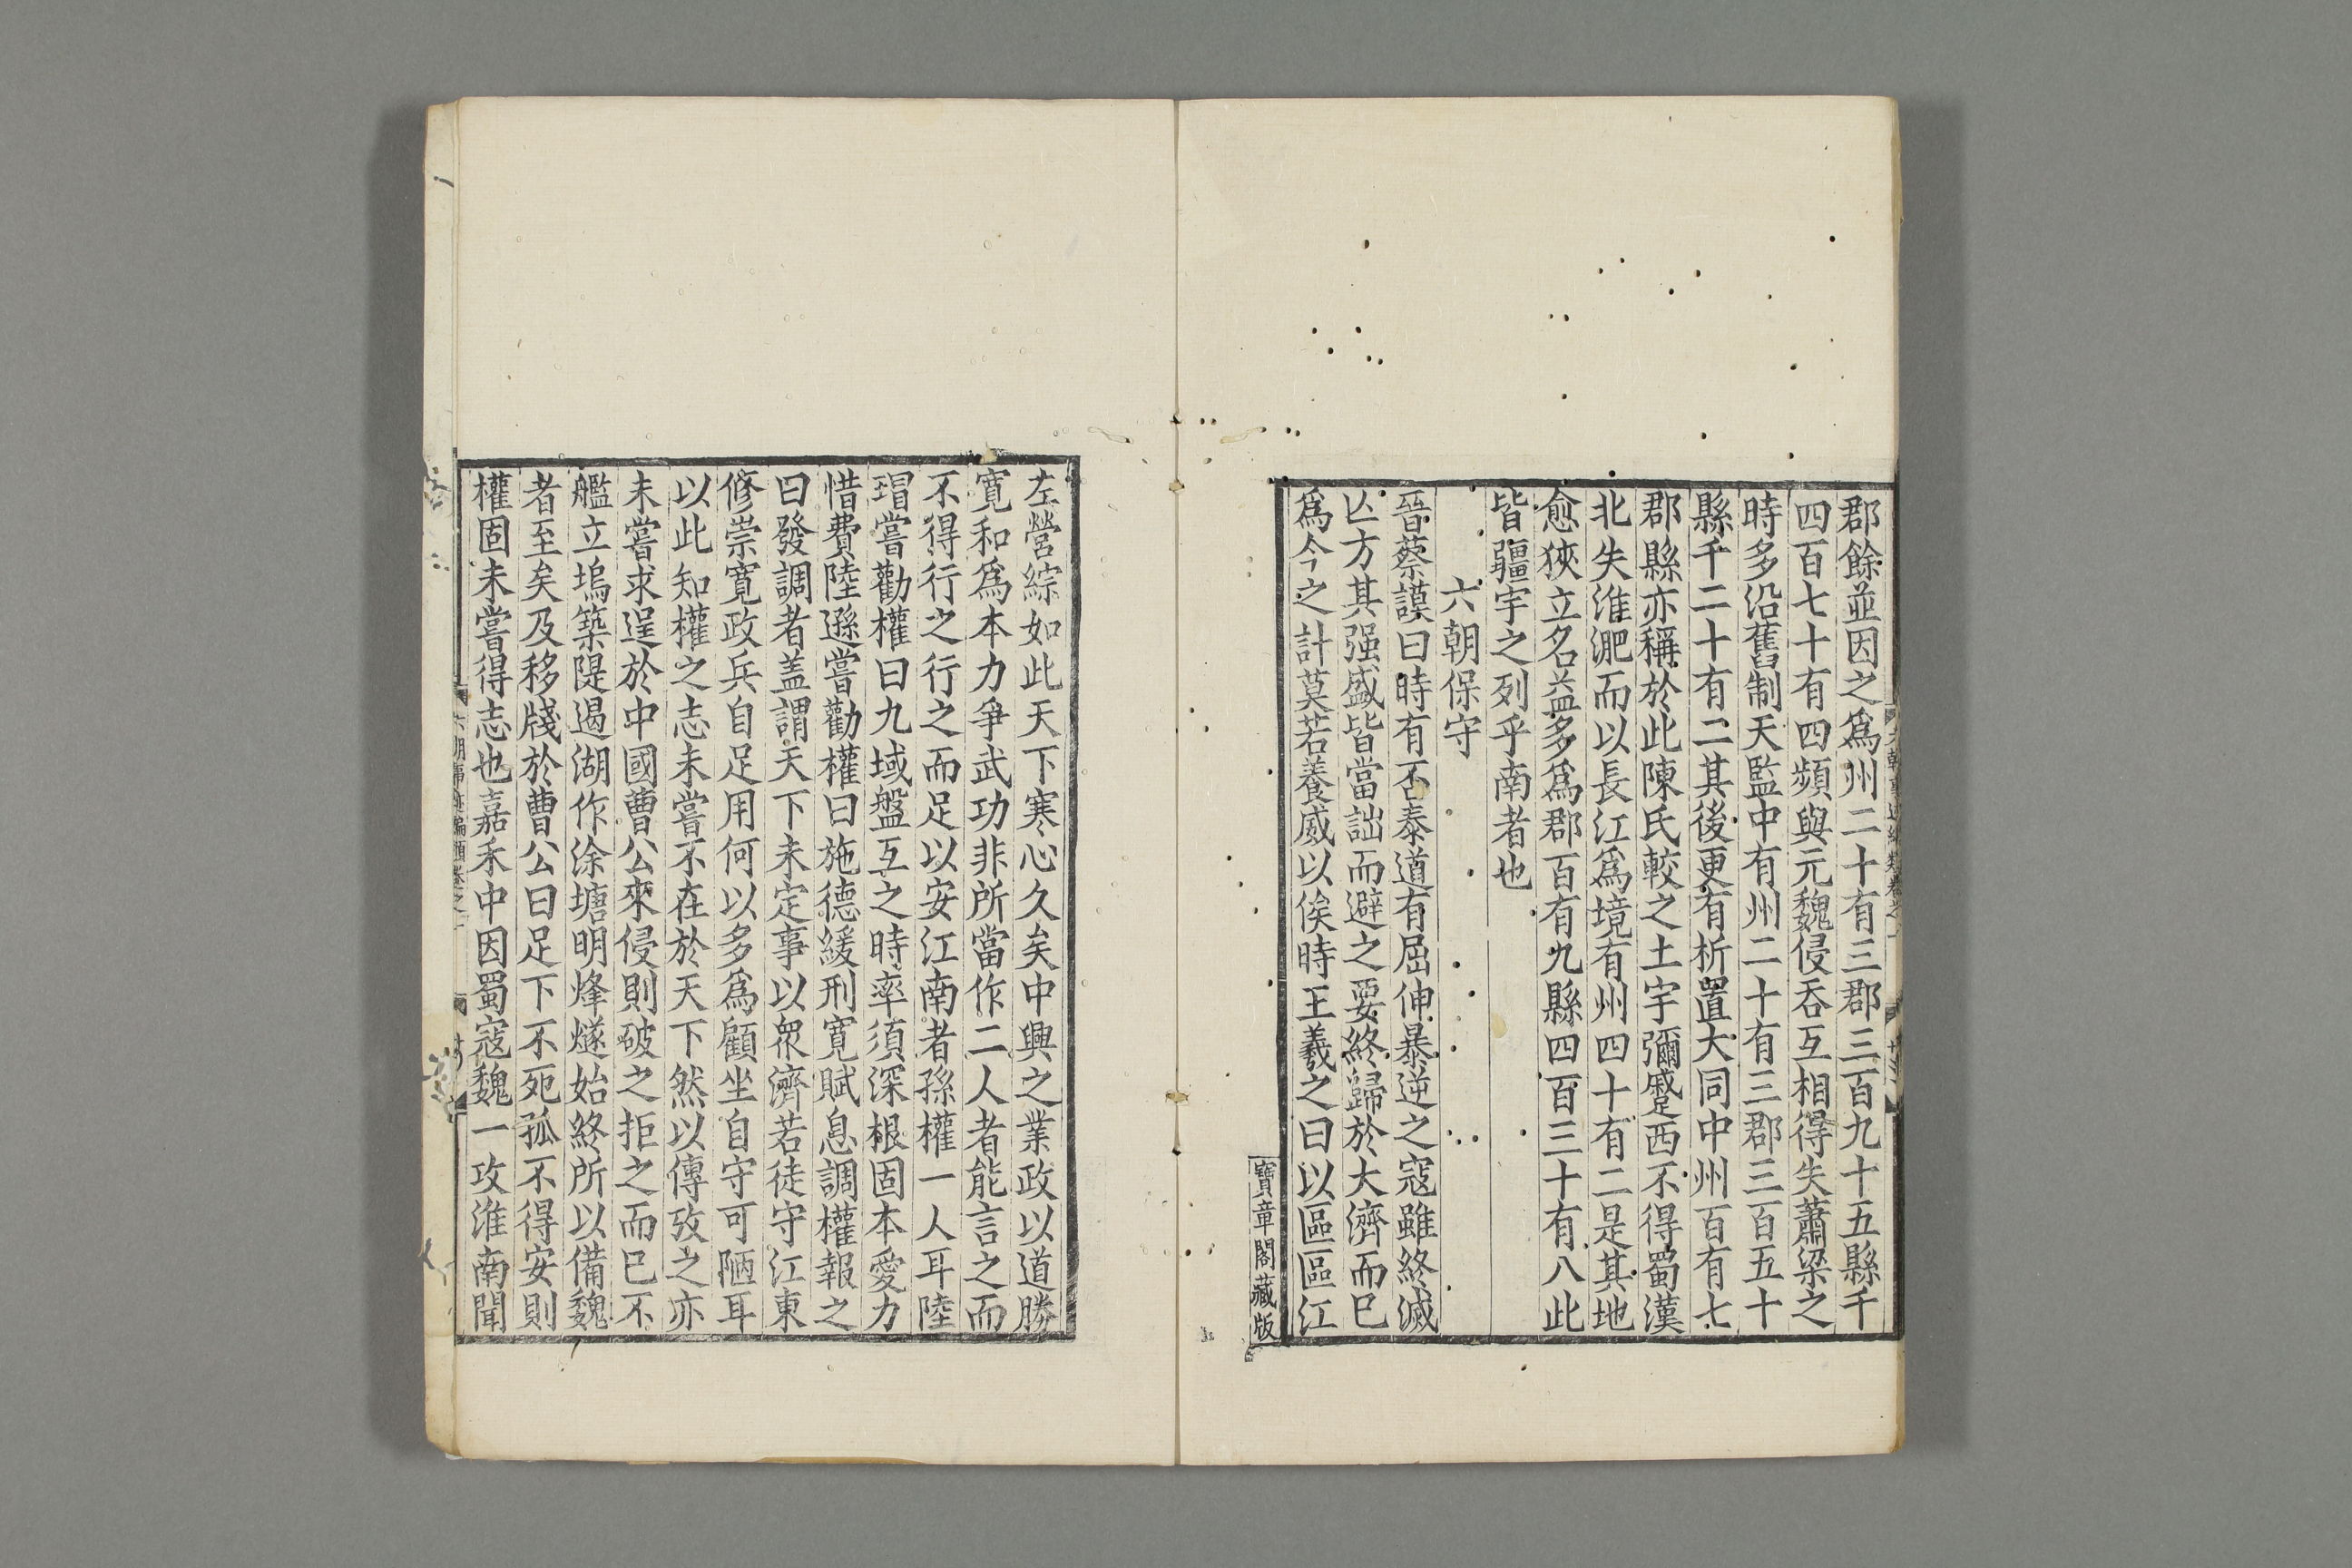 郡餘並因之爲州二十有三郡三百九十五縣千
四百七十有四頻與元魏侵吞互相得失蕭梁之
時多沿舊制天監中有州二十有三郡三百五十
縣千二十有二其後更有析置大同中州百有七
郡縣亦稱於此陳氏較之土宇彌蹙西不得蜀漢
北失淮淝而以長江爲境有州四十有二是其地
愈狹立名益多爲郡百有九縣四百三十有八此
皆疆宇之列乎南者也
六朝保守
晉蔡謨曰時有否泰道有屈伸暴逆之寇雖終滅
亾方其强盛皆當詘而避之要終歸於大濟而已
爲今之計莫若養威以俟時王羲之曰以區區江
寶章閣藏版
左營綜如此天下寒心久矣中興之業政以道勝
寛和爲本力爭武功非所當作二人者能言之而
不得行之行之而足以安江南者孫權一人耳陸
瑁嘗勸權曰九域盤互之時率須深根固本愛力
惜費陸遜嘗勸權曰施德緩刑寛賦息調權報之
曰發調者盖謂天下未定事以衆濟若徒守江東
修崇寛政兵自足用何以多爲顧坐自守可陋耳
以此知權之志未嘗不在於天下然以傳攷之亦
未嘗求逞於中國曹公來侵則破之拒之而已不
艦立塢築隄遏湖作涂塘明烽燧始終所以備魏
者至矣及移牋於曹公曰足下不死孤不得安則
權固未嘗得志也嘉禾中因蜀寇魏一攻淮南聞
六朝事迹編類卷之一